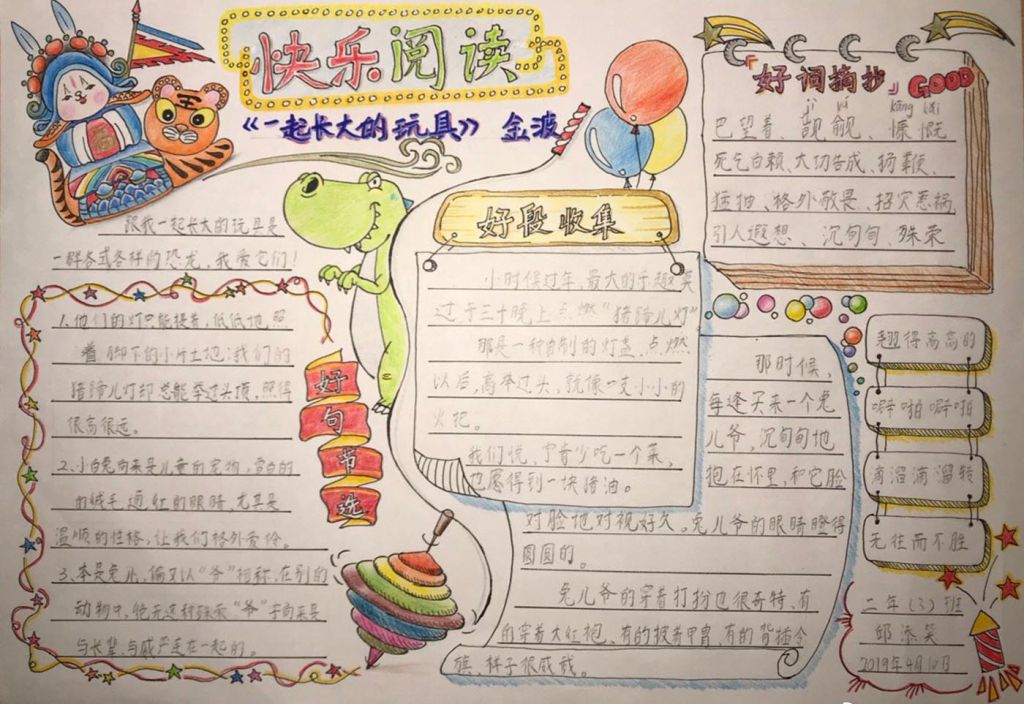 快乐阅读
《一起长大的玩具》 金波
跟我一起长大的玩具是
一群各式各样的恐龙,我爱它们!
好句节选
1.他们的灯只能提着,低低地,照
着脚下的小片土地;我们的
猪蹄儿灯却总能举过头顶,照得
很高很远。
2、小白兔向来是儿童的宠物,雪白的
的绒毛,通红的眼睛,尤其是
温顺的性格,让我们格外爱怜。
3、本是兔儿,偏又以“爷”相称,在别的
动物中,绝无这种殊荣“爷”字向来是
与长辈、与威严连在一起的。
好段收集
小时候过年,最大的乐趣莫
过于三十晚上点燃“猪蹄儿灯”
那是一种自制的灯盏,点燃
以后,高举过头,就像一支小小的
火把。
我们说,宁肯少吃一个菜,
也愿得到一块猪油。
那时候,
每逢买来一个兔
儿爷,沉甸甸地
抱在怀里,和它脸
对脸地对视好久。兔儿爷的眼睛瞪得
圆圆的。
兔儿爷的穿着打扮也很奇特,有
的穿着大红袍,有的披着甲胄,有的背插令
旗,样子很威武。
「好词摘抄」GOOD
jì yú kāng kǎi
巴望着、觊觎、慷慨
死乞白赖、大功告成、扬鞭、
猛抽、格外敬畏、招灾惹祸
引人遐想、沉甸甸、殊荣
翘得高高的
噼啪噼啪
滴溜滴溜转
无往而不胜
二年(3)班
邱添笑
2019年4月10日